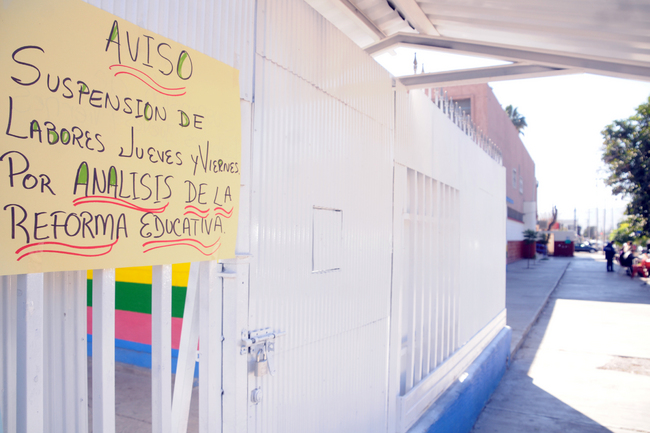 AVISO
SUSPENSION DE
LABORES JUEVES Y VIERNES.
POR ANALISIS DE LA
REFORMA EDUCATIVA.